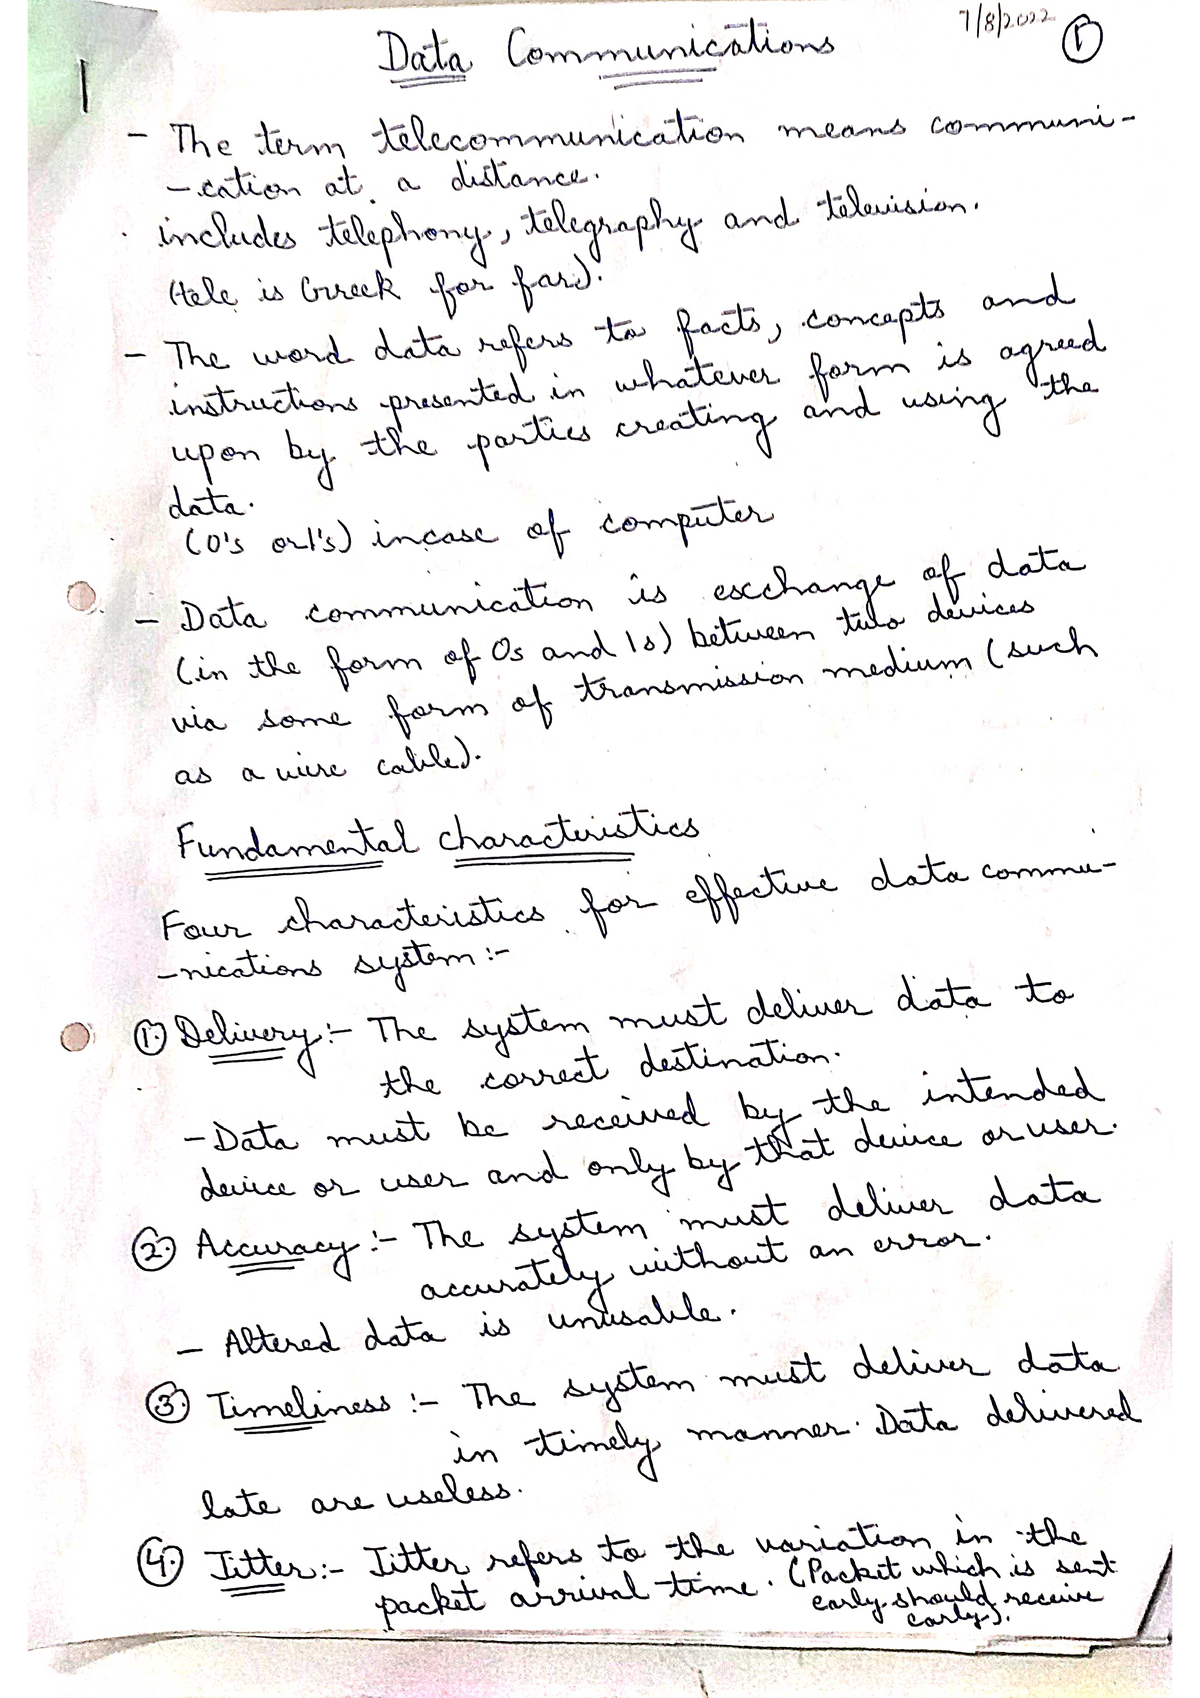 7/8/2022 ①
Data Communications
- The term telecommunication means communi-
-cation at a distance.
includes telephony, telegraphy and television.
(tele is Greek for far).
- The word data refers to facts, concepts and
instructions presented in whatever form is agreed
upon by the parties creating and using the
data.
(0's or 1's) incase of computer
- Data communication is exchange of data
(in the form of 0s and 1s) between two devices
via some form of transmission medium (such
as a wire cable).
Fundamental characteristics
Four characteristics for effective data commu-
-nications system :-
①. Delivery :- The system must deliver data to
the correct destination.
- Data must be received by the intended
device or user and only by that device or user.
②. Accuracy :- The system must deliver data
accurately without an error.
- Altered data is unusable.
③. Timeliness :- The system must deliver data
in timely manner. Data delivered
late are useless.
④. Jitter :- Jitter refers to the variation in the
packet arrival time. (Packet which is sent
early should receive
early).